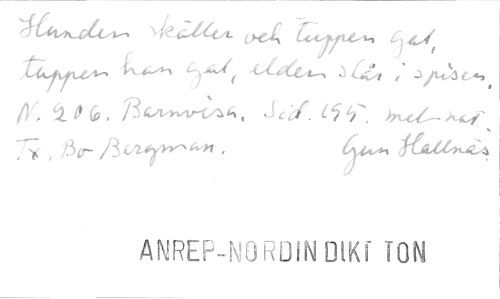 Hunden skäller och tuppen gal,
tuppen han gal, elden slår i spisen.
N. 206. Barnvisa. Sid. 195. mel-not.
Tx. Bo Bergman. Gun Hallnäs.
ANREP-NORDIN DIKT TON